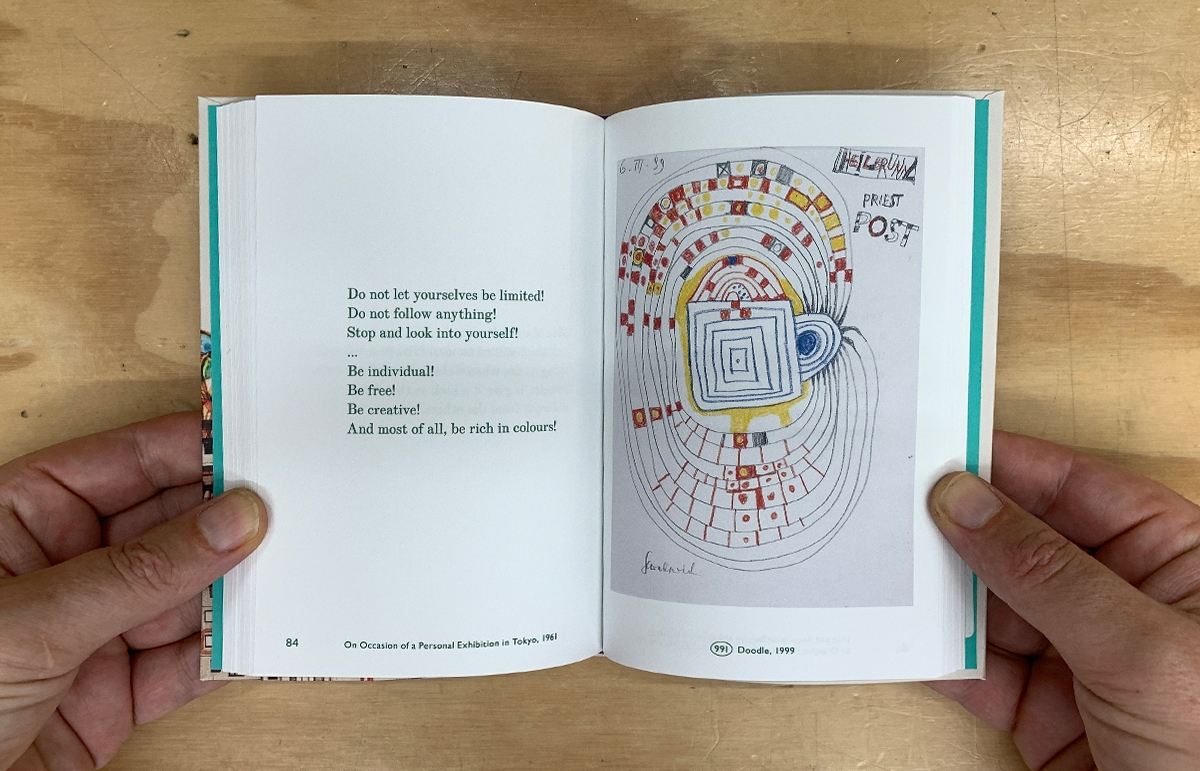 Do not let yourselves be limited!
Do not follow anything!
Stop and look into yourself!
...
Be individual!
Be free!
Be creative!
And most of all, be rich in colours!
84
On Occasion of a Personal Exhibition in Tokyo, 1961
HEILBRUNN
PRIEST
POST
991 Doodle, 1999